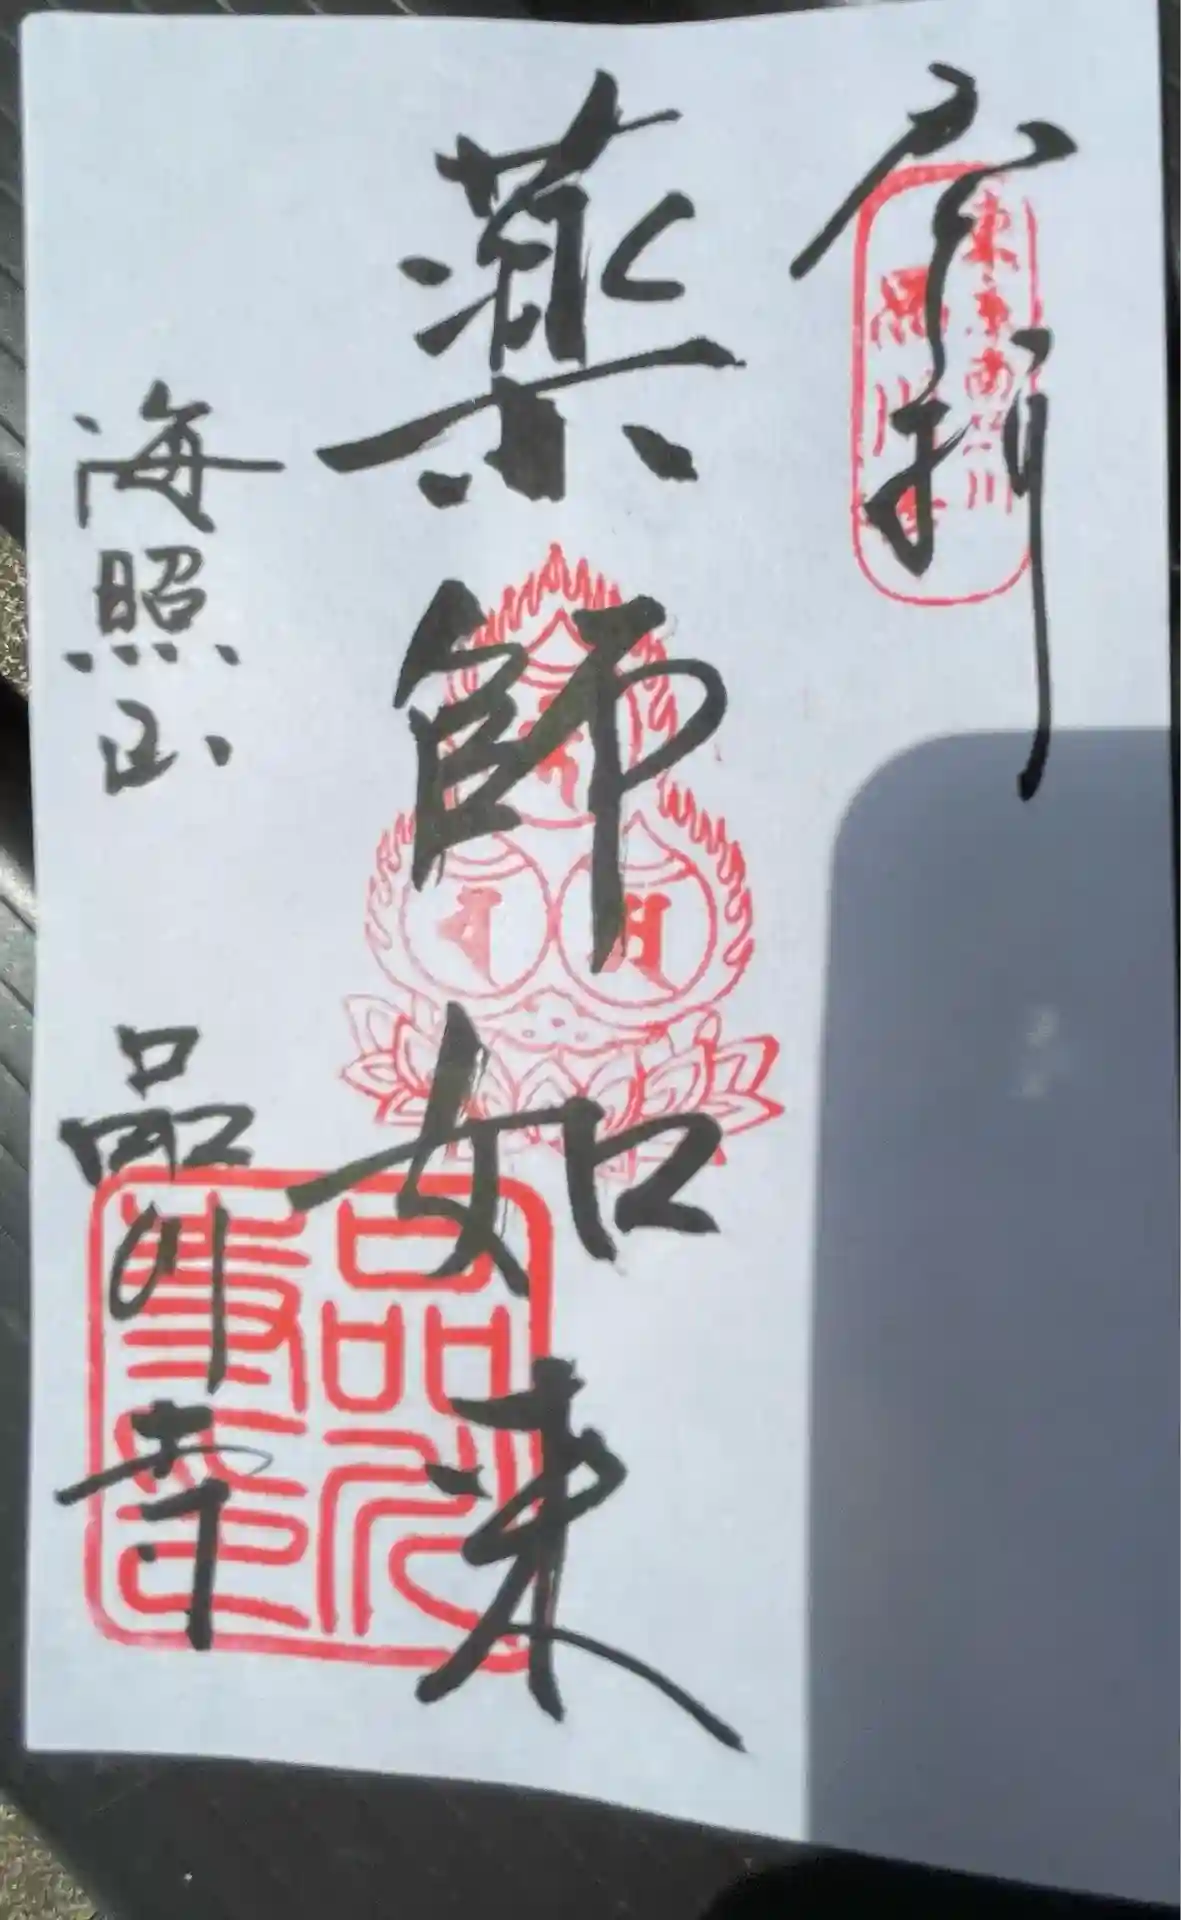 奉拝
東京南品川
品川寺
薬師如来
海照山
品川寺
品川寺印